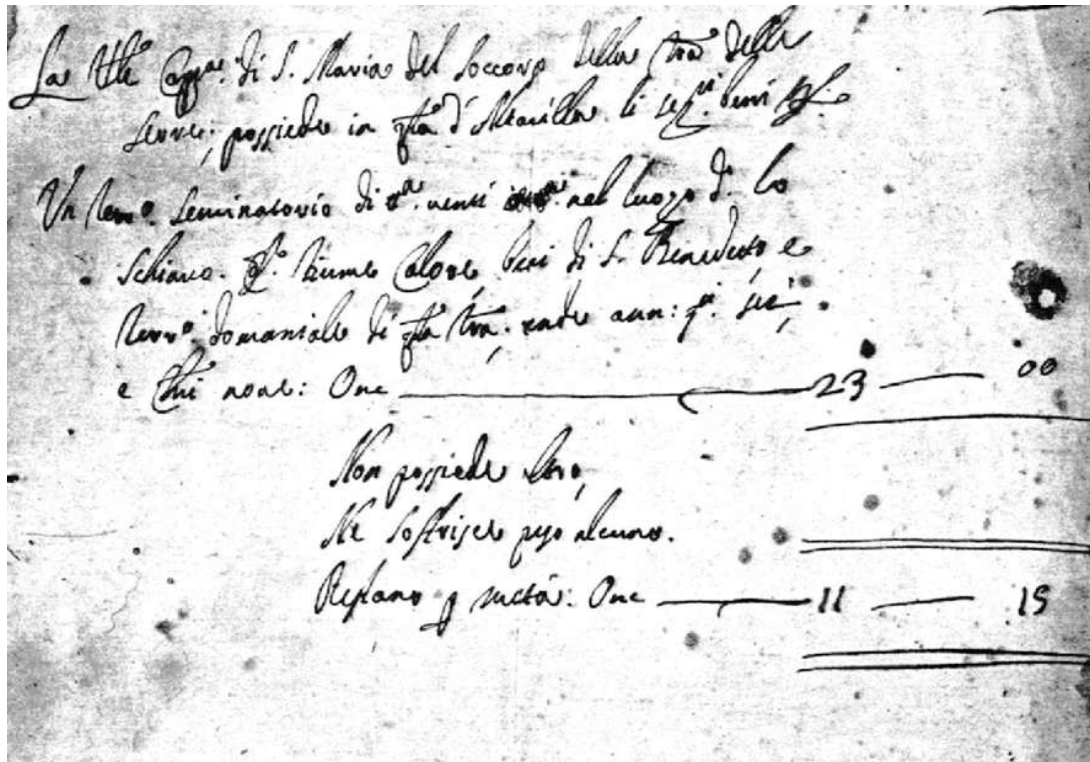 La Capp.a di S. Maria del Soccorso della Tra delle
Serre; possiede in q.ta d'Altavilla li beni
Un terr.o seminatorio di t.a venti nel luogo d. lo
Schiavo. Fiume Calore, beni di S. Benedetto, e
terr.o domaniale di q.ta Tra, rende ann: sei,
e noue: Onc 23 00
Non possiede altro,
Ne soffrisce peso alcuno.
Restano p metà: Onc 11 15